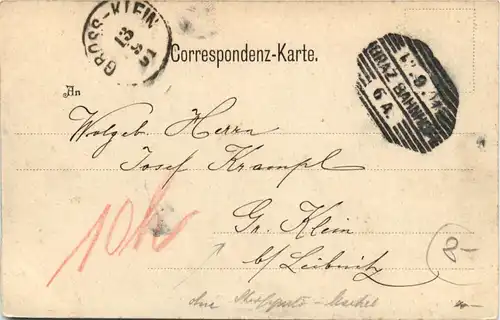 GROSS-KLEIN
13 9 01
Correspondenz-Karte.
GRAZ BAHNHOF
6 A.
An
Wolgeb. Herrn
Josef Krampl
10h
Gr. Klein
b/Leibnitz
8-